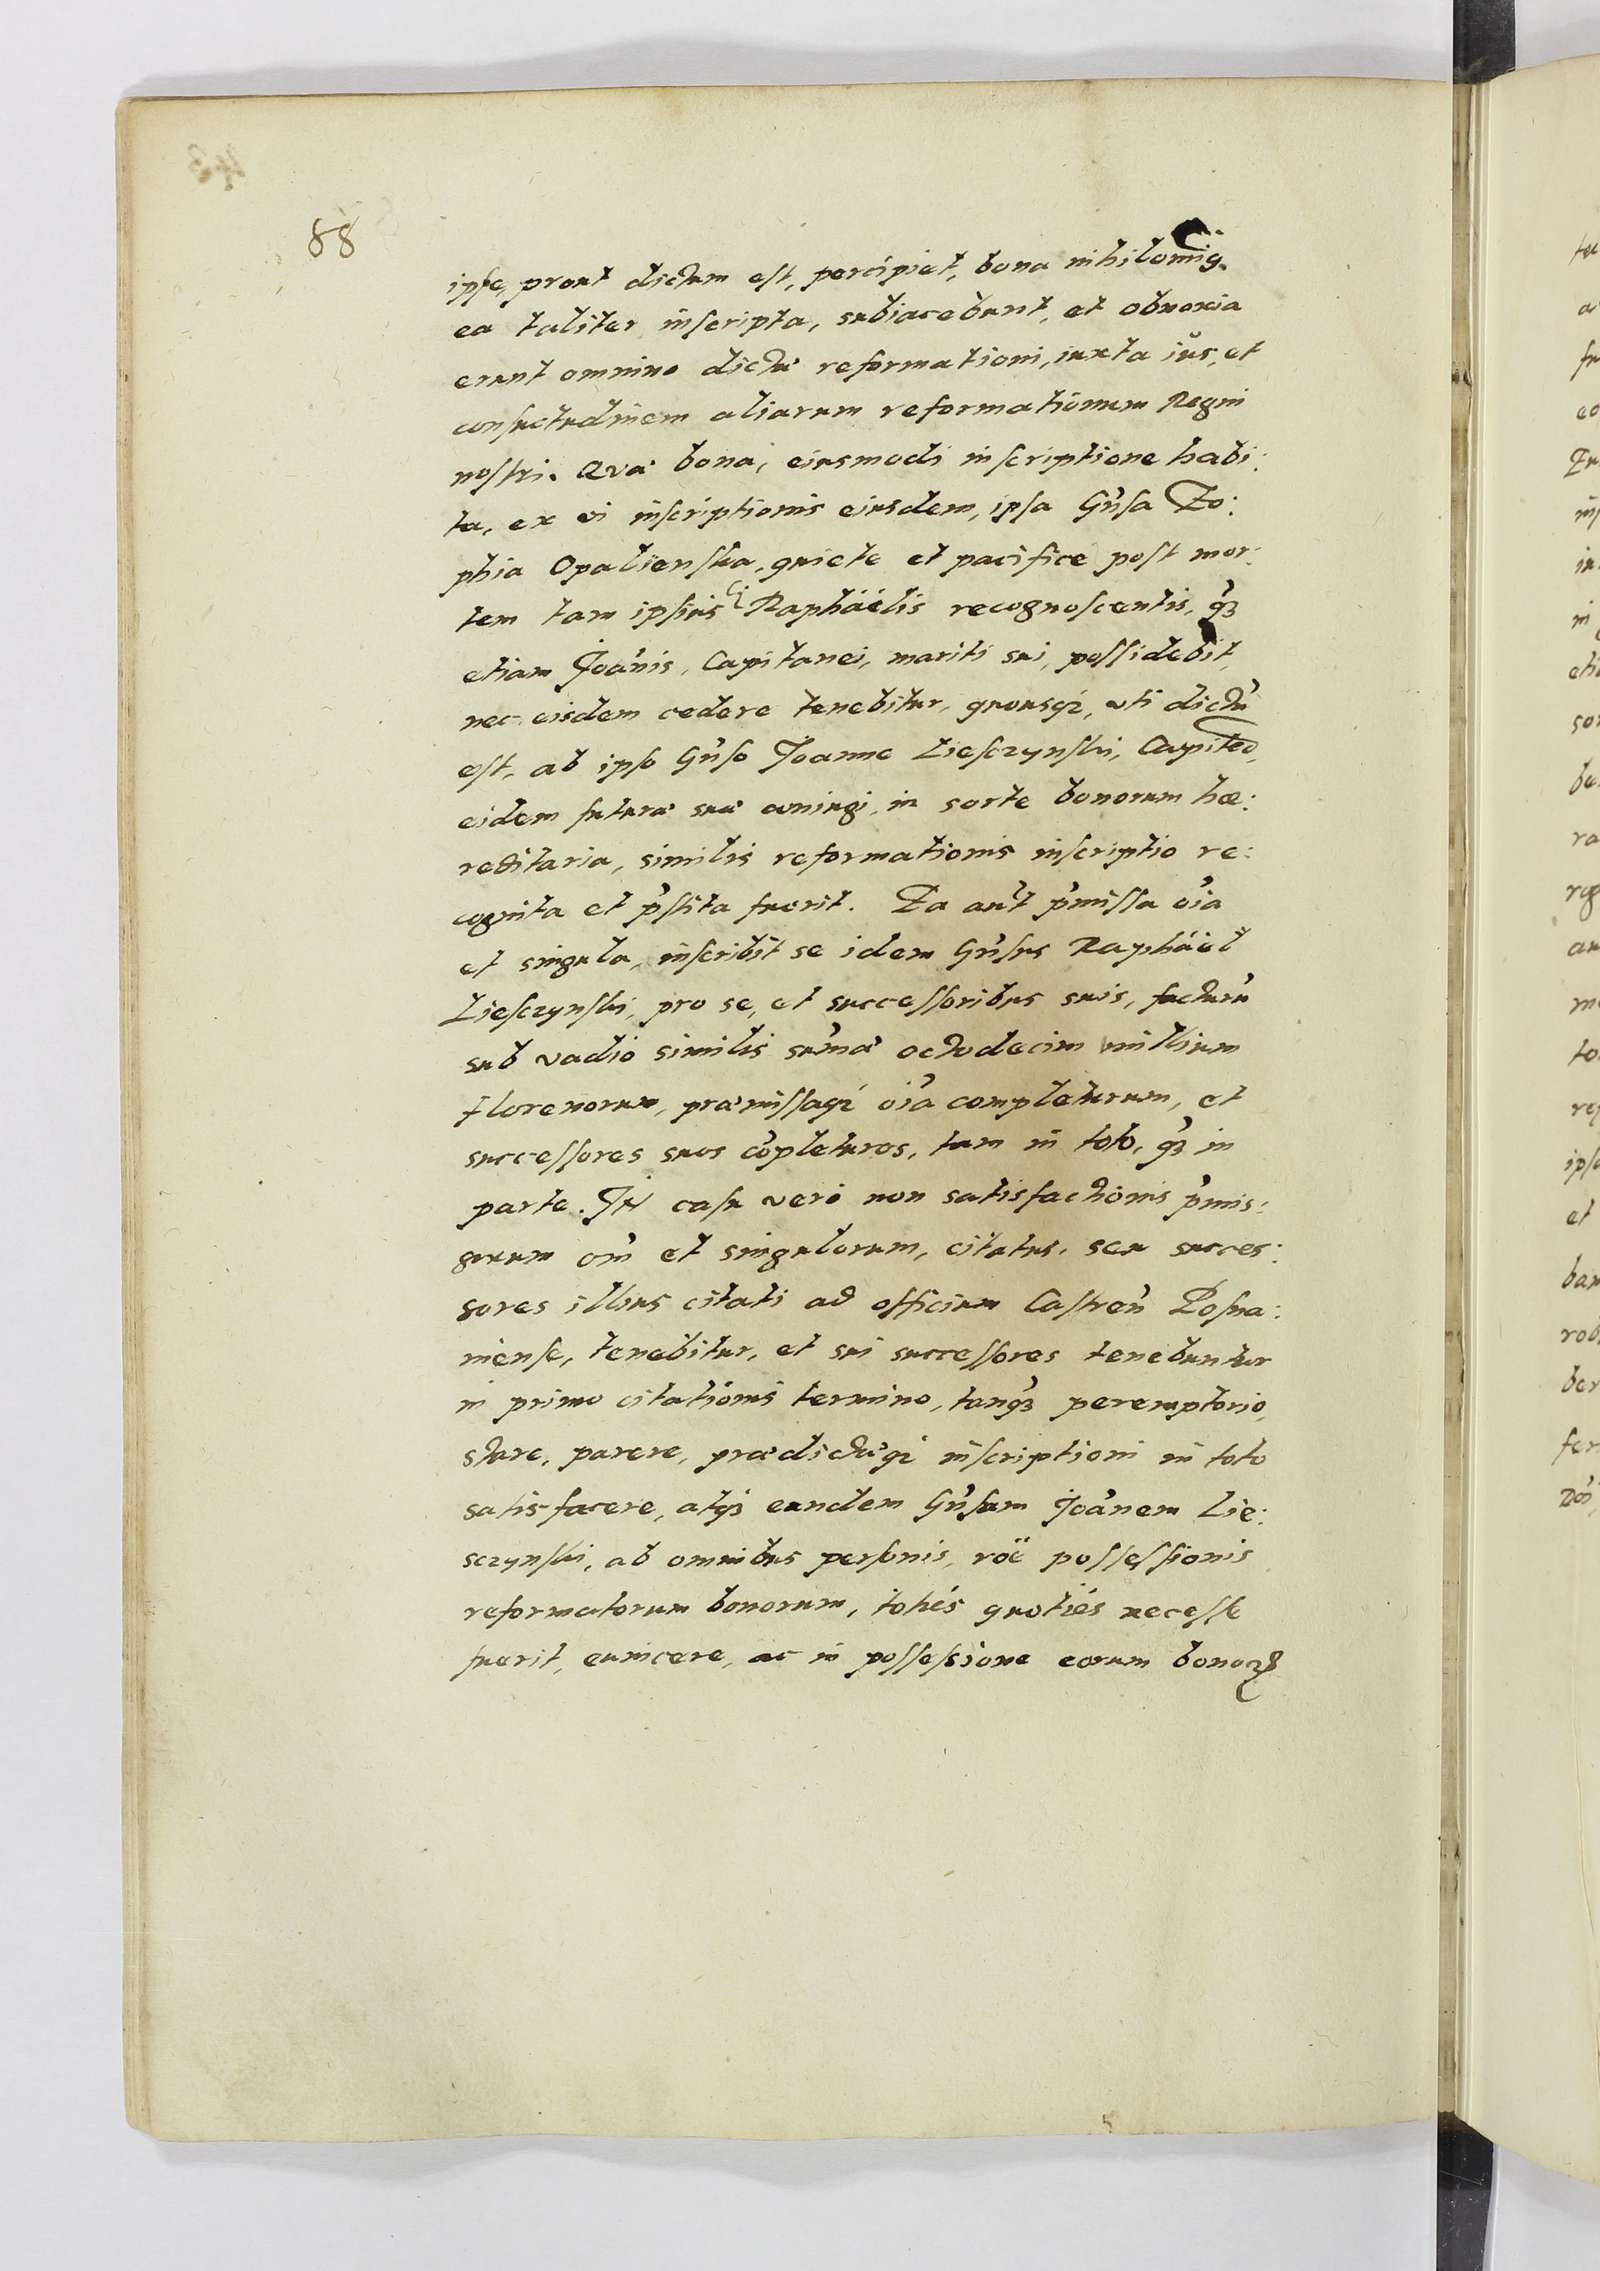 88
ipse, prout dictum est, percipiet, bona nihilomiq.
ea taliter inscripta, subiacebunt, et obnoxia
erunt omnino dictæ reformationi, iuxta iùs, et
consuetudinem aliarum reformationum Regni
nostri. Quæ bona, eiusmodi inscriptione habi:
ta, ex vi inscriptionis eiusdem, ipsa Gn̄sa Zo:
phia Opalienska, quiete et pacifice post mor:
tem tam ipsius Raphäélis recognoscentis, qȝ
etiam Joānis, Capitanei, mariti sui, possidebit,
nec eisdem cedere tenebitur, quousqȝ, uti dictū
est, ab ipso Gn̄so Joanne Liesczynski, Capiteo,
eidem futuræ suæ coniugi, in sorte bonorum hæ:
reditaria, similis reformationis inscriptio re:
cognita et p̄stita fuerit. Ea aūt p̄missa oīa
et singula, inscribit se idem Gn̄sus Raphäél
Liesczynski, pro se, et successoribus suis, facturū
sub vadio similis sum̄æ octodecim millium
florenorum, præmissaqȝ oīa completurum, et
successores suos cōpleturos, tam in toto, qȝ in
parte. In casu verò non satisfactionis p̄mis:
sorum om̄ et singulorum, citatus, seu succes:
sores illius citati ad officium Castren̄ Posna:
niense, tenebitur, et sui successores tenebuntur
in primo citationis termino, tanqȝ peremptorio,
stare, parere, prædictæqȝ inscriptioni in toto
satisfacere, atqȝ eundem Gn̄sum Joānem Lie:
sczynski, ab omnibus personis, röe possessionis
reformatorum bonorum, totiés quotiés necesse
fuerit, euincere, ac in possessione eorum bonoꝝ